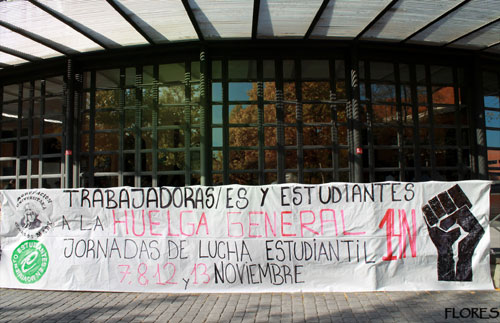 TRABAJADORAS/ES Y ESTUDIANTES
A LA HUELGA GENERAL 14N
JORNADAS DE LUCHA ESTUDIANTIL
7, 8, 12 y 13 NOVIEMBRE
FLORES